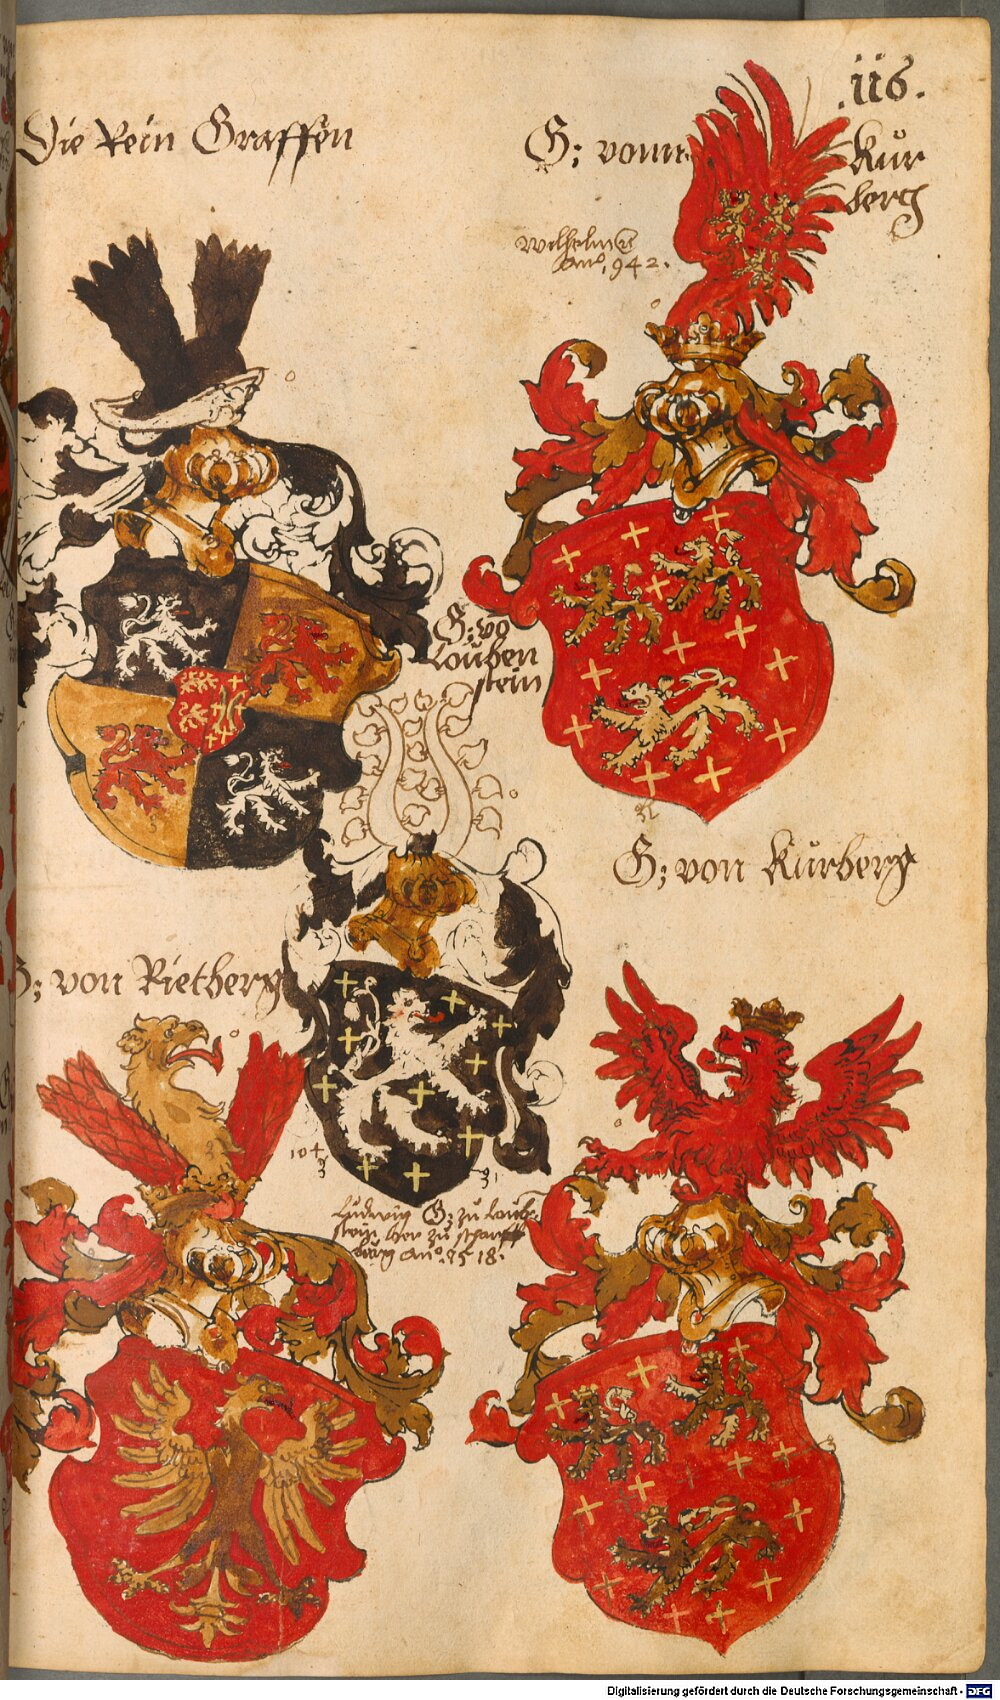 .116.
Die Rein Graffen
G; vonn Kür
berg
Wilhelm G
Anno 942.
G; vo
Louben
stein
G; von Kürberg
G; von Rietberg
Ludwig G; zu Laub
stein, her zu scharff
berg Ano. 1518.
Digitalisierung gefördert durch die Deutsche Forschungsgemeinschaft - DFG